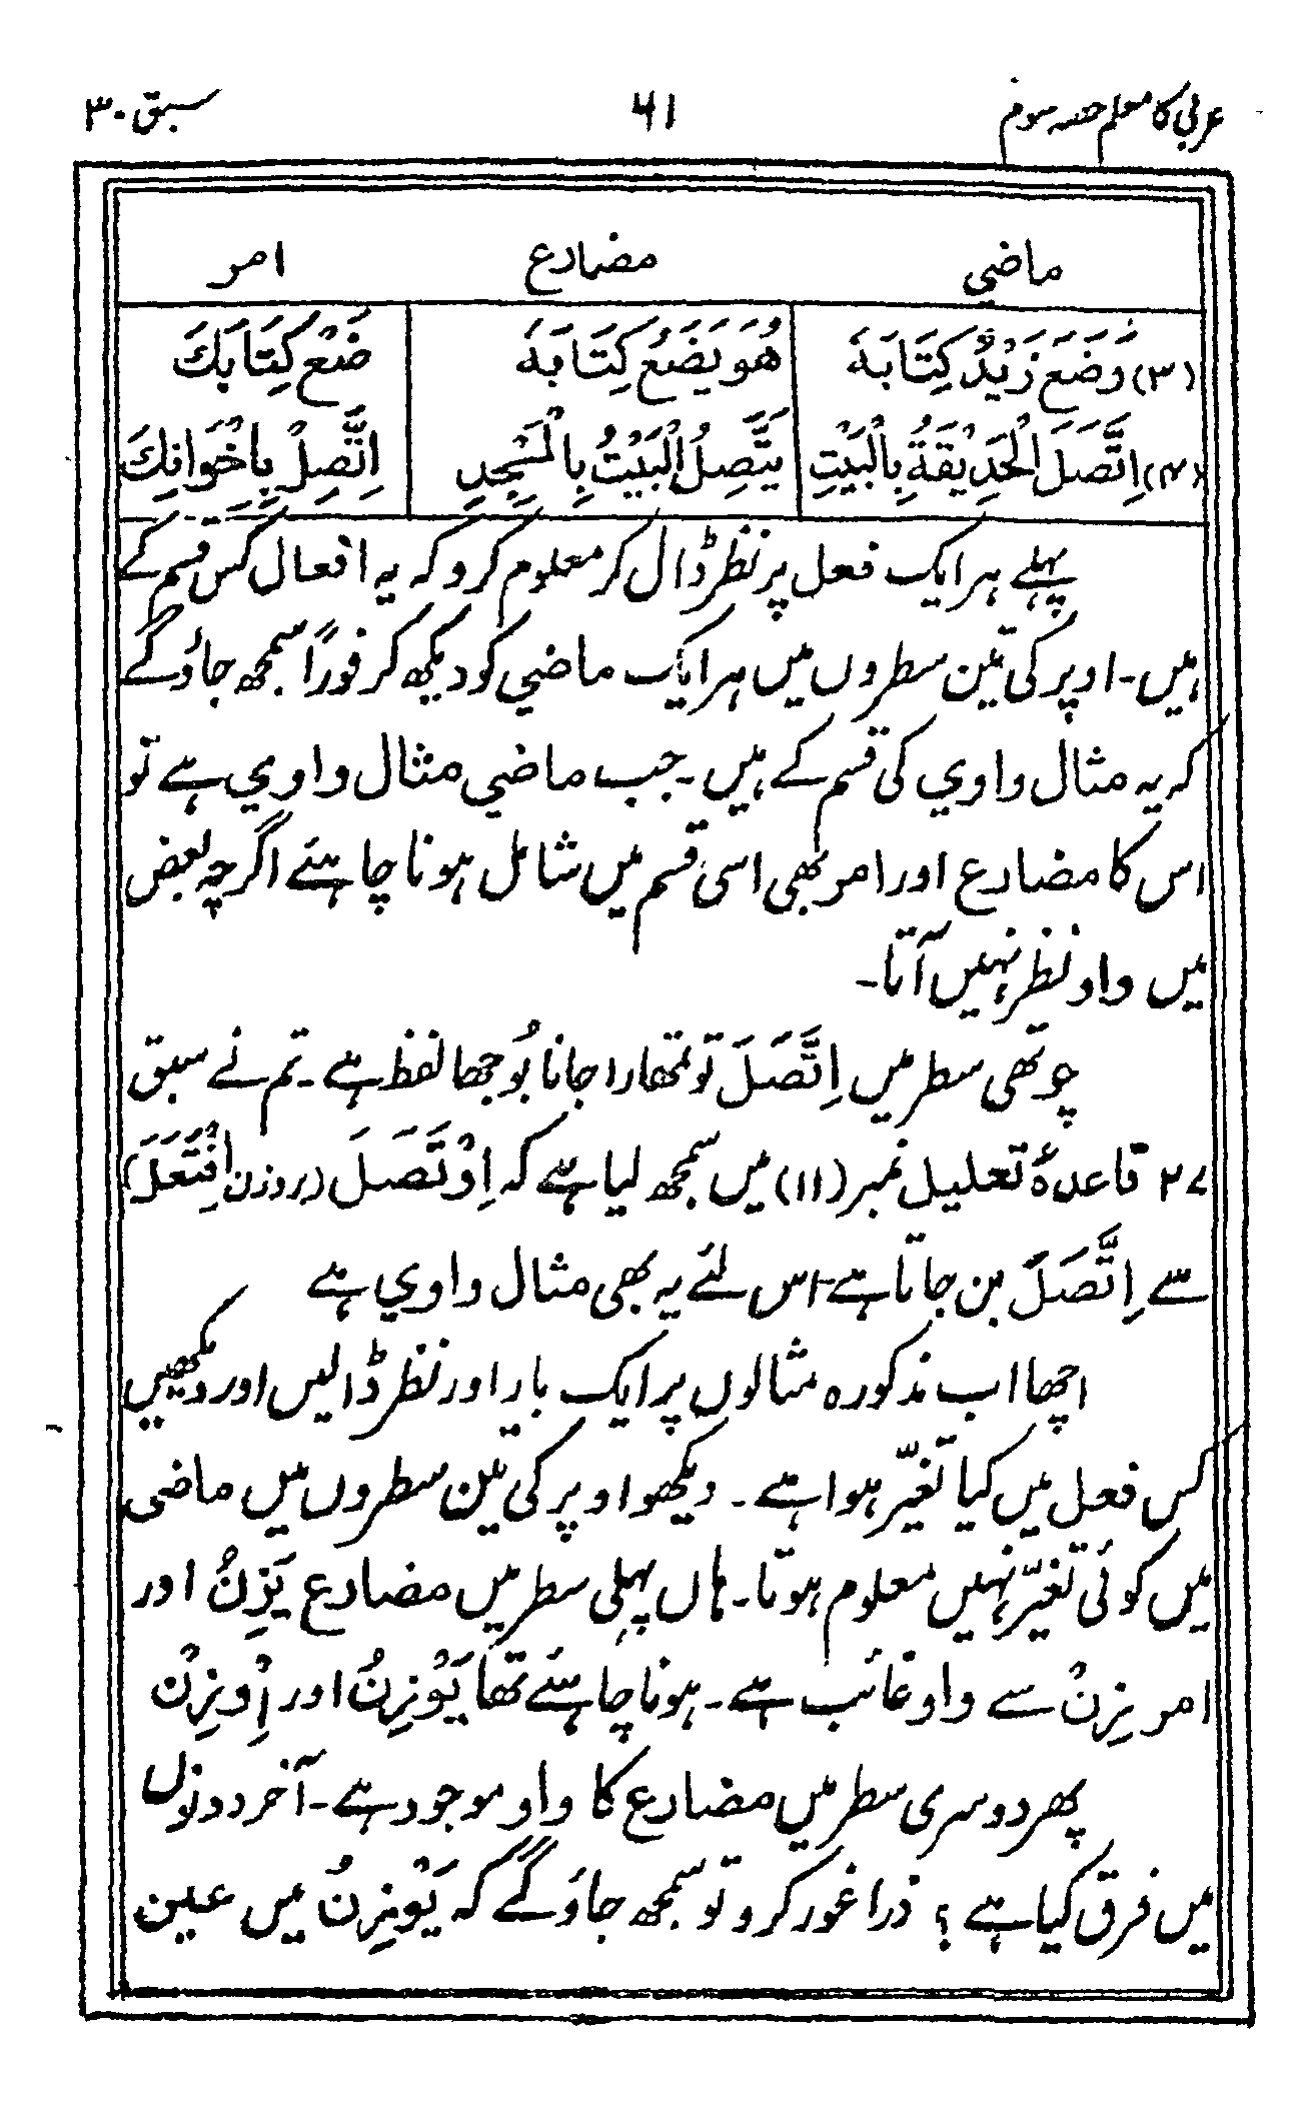 عربی کا معلم حصہ سوم ۶۱ سبق ۳۰
ماضي مضارع امر
(۳) وَضَعَ زَيْدٌ كِتَابَهُ هُوَ يَضَعُ كِتَابَهُ ضَعْ كِتَابَكَ
(۴) اِتَّصَلَ الْحَدِيْقَةُ بِالْبَيْتِ يَتَّصِلُ الْبَيْتُ بِالْمَسْجِدِ اِتَّصِلْ بِاِخْوَانِكَ
پہلے ہر ایک فعل پر نظر ڈال کر معلوم کرو کہ یہ افعال کس قسم کے
ہیں۔ اوپر کی تین سطروں میں ہر ایک ماضي کو دیکھ کر فوراً سمجھ جاؤ گے
کہ یہ مثال واوي کی قسم کے ہیں۔ جب ماضي مثال واوي ہے تو
اس کا مضارع اور امر بھی اسی قسم میں شامل ہونا چاہئے اگرچہ بعض
میں واو نظر نہیں آتا۔
چوتھی سطر میں اِتَّصَلَ تو تمھارا جانا بُوجھا لفظ ہے۔ تم نے سبق
۲۷ قاعدۂ تعلیل نمبر (۱۱) میں سمجھ لیا ہے کہ اِوْتَصَلَ (بروزن اِفْتَعَلَ)
سے اِتَّصَلَ بن جاتا ہے۔ اس لئے یہ بھی مثال واوي ہے
اچھا اب مذکورہ مثالوں پر ایک بار اور نظر ڈالیں اور دیکھیں
کس فعل میں کیا تغیّر ہوا ہے۔ دیکھو اوپر کی تین سطروں میں ماضی
میں کوئی تغیّر نہیں معلوم ہوتا۔ ہاں پہلی سطر میں مضارع يَزِنُ اور
امر زِنْ سے واو غائب ہے۔ ہونا چاہئے تھا يَوْزِنُ اور اِوْزِنْ
پھر دوسری سطر میں مضارع کا واو موجود ہے۔ آخر دونوں
میں فرق کیا ہے؟ ذرا غور کرو تو سمجھ جاؤ گے کہ يَوْزِنُ میں عین